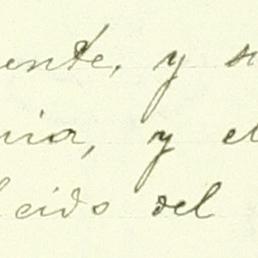 ente, y s
nia, y el
cido del